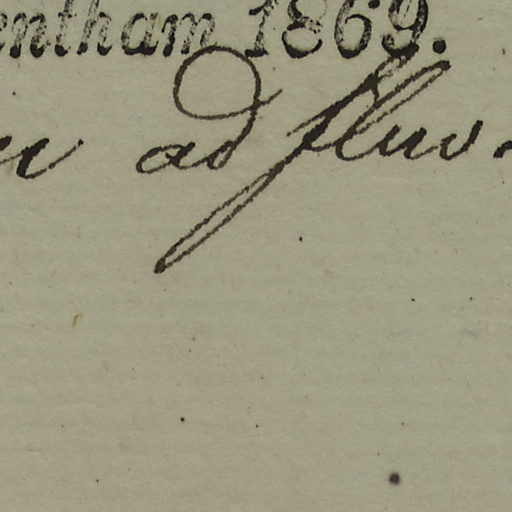 entham 1869.
ad fluv.